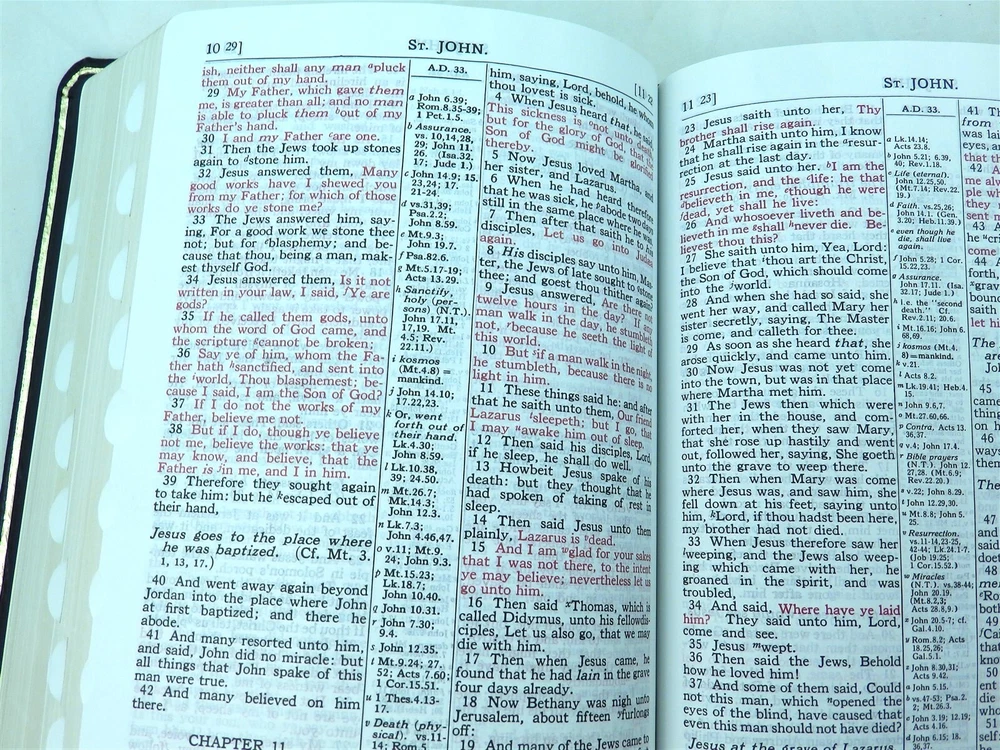 10 29]
ST. JOHN.
[11 22
ish, neither shall any man apluck
them out of my hand.
29 My Father, which gave them
me, is greater than all; and no man
is able to pluck them bout of my
Father's hand.
30 I and my Father care one.
31 Then the Jews took up stones
again to dstone him.
32 Jesus answered them, Many
good works have I shewed you
from my Father; for which of those
works do ye stone me?
33 The Jews answered him, say-
ing, For a good work we stone thee
not; but for eblasphemy; and be-
cause that thou, being a man, mak-
est thyself God.
34 Jesus answered them, Is it not
written in your law, I said, fYe are
gods?
35 If he called them gods, unto
whom the word of God came, and
the scripture gcannot be broken;
36 Say ye of him, whom the Fa-
ther hath hsanctified, and sent into
the iworld, Thou blasphemest; be-
cause I said, I am the Son of God?
37 If I do not the works of my
Father, believe me not.
38 But if I do, though ye believe
not me, believe the works: that ye
may know, and believe, that the
Father is jin me, and I in him.
39 Therefore they sought again
to take him: but he kescaped out of
their hand,
Jesus goes to the place where
he was baptized. (Cf. Mt. 3.
1, 13, 17.)
40 And went away again beyond
Jordan into the place where John
at first baptized; and there he
abode.
41 And many resorted unto him,
and said, John did no miracle: but
all things that John spake of this
man were true.
42 And many believed on him
there.
CHAPTER 11
A.D. 33.
a John 6.39;
Rom.8.35-39;
1 Pet.1.5.
b Assurance.
vs. 10,14,28,
29; John 11.
26. (Isa.32.
17; Jude 1.)
c John 14.9; 15.
23,24; 17.
21-24.
d vs.31,39;
Psa.2.2;
John 8.59.
e Mt.9.3;
John 19.7.
f Psa.82.6.
g Mt.5.17-19;
Acts 13.29.
h Sanctify,
holy (per-
sons) (N.T.).
John 17.11
17,19. Mt.
4.5; Rev.
22.11.)
i kosmos
(Mt.4.8) =
mankind.
j John 14.10;
17.22,23.
k Or, went
forth out of
their hand.
Lk.4.30;
John 8.59.
l Lk.10.38,
39; 24.50.
m Mt.26.7;
Mk.14.3;
John 12.3.
n Lk.7.3;
John 4.46,47.
o v.11; Mt.9.
24; John 9.3.
p Mt.15.23;
Lk.18.7;
John 10.40.
q John 10.31.
r John 7.30;
9.4.
s John 12.35.
t Mt.9.24; 27.
52; Acts 7.60;
1 Cor.15.51.
u 1 Thes.4.13-
17.
v Death (phy-
sical). vs.11-
14; Rom.5
him, saying, Lord, behold, he whom
thou lovest is sick.
4 When Jesus heard that, he said,
This sickness is not unto death,
but for the glory of God, that the
Son of God might be glorified
thereby.
5 Now Jesus loved Martha, and
her sister, and Lazarus.
6 When he had heard therefore
that he was sick, he pabode two days
still in the same place where he was.
7 Then after that saith he to his
disciples, Let us go into Judæa
again.
8 His disciples say unto him, Mas-
ter, the Jews of late sought to stone
thee; and goest thou thither again?
9 Jesus answered, Are there not
twelve hours in the day? If any
man walk in the day, he stumbleth
not, rbecause he seeth the light of
this world.
10 But sif a man walk in the night,
he stumbleth, because there is no
light in him.
11 These things said he: and after
that he saith unto them, Our friend
Lazarus tsleepeth; but I go, that
I may uawake him out of sleep.
12 Then said his disciples, Lord,
if he sleep, he shall do well.
13 Howbeit Jesus spake of his
death: but they thought that he
had spoken of taking of rest in
sleep.
14 Then said Jesus unto them
plainly, Lazarus is vdead.
15 And I am wglad for your sakes
that I was not there, to the intent
ye may believe; nevertheless let us
go unto him.
16 Then said xThomas, which is
called Didymus, unto his fellowdis-
ciples, Let us also go, that we may
die with him.
17 Then when Jesus came, he
found that he had lain in the grave
four days already.
18 Now Bethany was nigh unto
Jerusalem, about fifteen yfurlongs
off:
19 And many of the Jews came to
11 23]
ST. JOHN.
23 Jesus saith unto her, Thy
brother shall rise again.
24 Martha saith unto him, I know
that he shall rise again in the aresur-
rection at the last day.
25 Jesus said unto her, bI am the
resurrection, and the clife: he that
dbelieveth in me, ethough he were
fdead, yet shall he live:
26 And whosoever liveth and be-
lieveth in me gshall hnever die. Be-
lievest thou this?
27 She saith unto him, Yea, Lord:
I believe that ithou art the Christ,
the Son of God, which should come
into the jworld.
28 And when she had so said, she
went her way, and called Mary her
sister secretly, saying, The Master
is come, and calleth for thee.
29 As soon as she heard that, she
arose quickly, and came unto him.
30 Now Jesus was not yet come
into the town, but was in that place
where Martha met him.
31 The Jews then which were
with her in the house, and com-
forted her, when they saw Mary,
that she rose up hastily and went
out, followed her, saying, She goeth
unto the grave to weep there.
32 Then when Mary was come
where Jesus was, and saw him, she
fell down at his feet, saying unto
him, kLord, if thou hadst been here,
my brother had not died.
33 When Jesus therefore saw her
lweeping, and the Jews also weep-
ing which came with her, he
groaned in the spirit, and was
troubled,
34 And said, Where have ye laid
him? They said unto him, Lord,
come and see.
35 Jesus mwept.
36 Then said the Jews, Behold
how he loved him!
37 And some of them said, Could
not this man, which nopened the
eyes of the blind, have caused that
even this man should not have died?
Jesus at the grave of Lazarus
A.D. 33.
a Lk.14.14;
Acts 23.8.
b John 5.21; 6.39,
40; Rev.1.18.
c Life (eternal).
John 12.25,50.
(Mt.7.14; Rev.22.
19.)
d Faith. vs.25,26;
John 14.1. (Gen.
3.20; Heb.11.39.)
e even though he
die, shall live
again.
f John 5.28; 1 Cor.
15.22,23.
g Assurance.
John 17.11. (Isa.
32.17; Jude 1.)
h i.e. the "second
death." Cf.
Rev.2.11; 20.6.
i Mt.16.16; John 6.
68,69.
j kosmos (Mt.4.
8)=mankind.
k v.21.
l Acts 8.2.
m Lk.19.41; Heb.4.
15.
n John 9.6,7.
o Mt.27.60,66.
p Contra, Acts 13.
36,37.
q v.4; John 17.4.
r Bible prayers
(N.T.). John 12.
27,28. (Mt.6.9;
Rev.22.20.)
s v.22; John 8.29.
t John 12.29,30.
u Mt.8.8; John 5.
25.
v Resurrection.
vs.11-14,23-25,
42-44; Lk.24.1-7.
(Job 19.25;
1 Cor.15.52.)
w Miracles
(N.T.). vs.38-44;
John 20.19.
(Mt.8.2,3;
Acts 28.8,9.)
x John 20.5-7; cf.
Gal.4.10.
y Rom.8.2; Acts
18.25,26;
Gal.5.1.
z John 8.30,31;
Acts 9.42.
a John 5.15.
b vs.47-53; Psa.2.
2; Mt.26.3.
c John 3.19; 12.19;
Acts 4.16.
d John 6.15; 18.
36,37.
41
from
was
eyes, an
that th
42
me
ple wh
they
sent m
43
he
come
44
forth,
bound
and
bound
saith
let hi
The
45
came
thing
on h
46
ways
them
The
47
and
said
doet
48
me
ro
both
49
Ca
that
kno
50
ent
die
who
51
self: